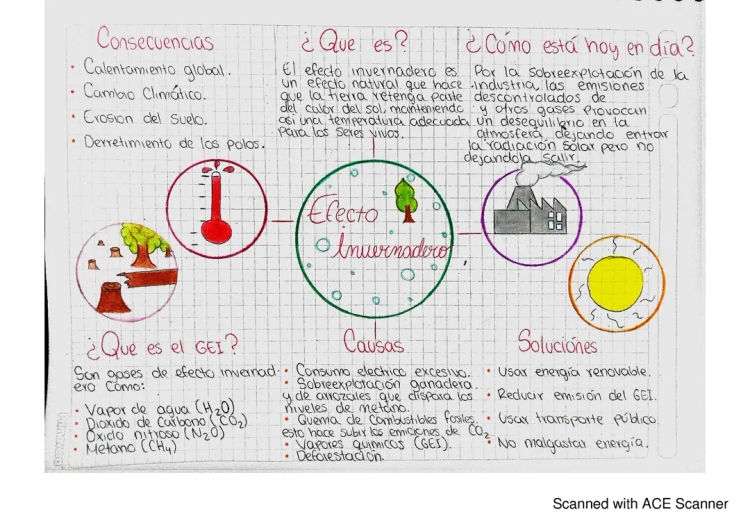 Consecuencias
• Calentamiento global.
• Cambio Climático.
• Erosion del suelo.
• Derretimiento de los polos.
¿Que es?
El efecto invernadero es
un efecto natural que hace
que la tierra retenga parte
del calor del sol, manteniendo
asi una temperatura adecuada
para los seres vivos.
¿Cómo está hoy en día?
Por la sobreexplotación de la
industria, las emisiones
descontrolados de
y otros gases provocan
un desequilibrio en la
atmosfera, dejando entrar
la radiación solar pero no
dejandola salir.
Efecto
Invernadero
¿Que es el GEI?
Son gases de efecto invernad-
ero como:
• Vapor de agua (H₂O)
• Dioxido de Carbono (CO₂)
• Óxido nitroso (N₂O)
• Metano (CH₄)
Causas
• Consumo electrico excesivo.
• Sobreexplotación ganadera
y de arrozales que dispara los
niveles de metano.
• Quema de Combustibles fosiles,
esto hace subir las emiciones de CO₂
• Vapores quimicos (GEI).
• Deforestación.
Soluciónes
• Usar energía renovable.
• Reducir emisión del GEI.
• Usar transporte público
• No malgastar energía.
Scanned with ACE Scanner